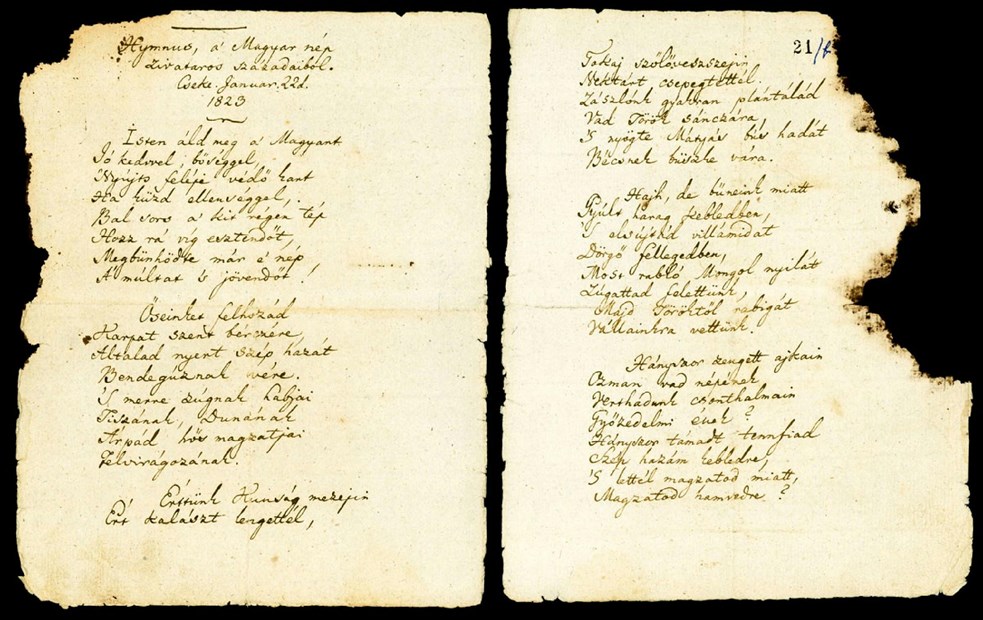 Hymnus, a' Magyar nép
zivataros századaiból.
Cseke. Januar. 22d.
1823
Isten áld meg a' Magyart
Jó kedvvel, bőséggel,
Nyújts feléje védő kart
Ha küzd ellenséggel,
Bal sors a' kit régen tép
Hozz rá víg esztendőt,
Megbünhödte már e' nép,
A' múltat 's jövendőt!
Őseinket felhozád
Kárpát szent bérczére,
Általad nyert szép hazát
Bendegúznak vére.
'S merre zugnak habjai
Tiszának, Dunának
Árpád hős magzatjai
Felvirágozának.
Értünk Kunság mezejin
Ért kalászt lengettél,
21/b
Tokaj szőlővesszejin
Nektárt csepegtettél.
Zászlónk gyakran plántálád
Vad Török sánczára,
'S nyögte Mátyás bús hadát
Bécsnek büszke vára.
Hajh, de bűneink miatt
Gyúlt harag kebledben,
'S elsújtád villámidat
Dörgő fellegedben,
Most rabló Mongol nyilát
Zúgattad felettünk,
Majd Töröktől rabigát
Vállainkra vettünk.
Hányszor zengett ajkain
Ozman vad népének
Vert hadunk csonthalmain
Győzedelmi ének?
Hányszor támadt tennfiad
Szép hazám kebledre,
'S lettél magzatod miatt,
Magzatod hamvvedre?